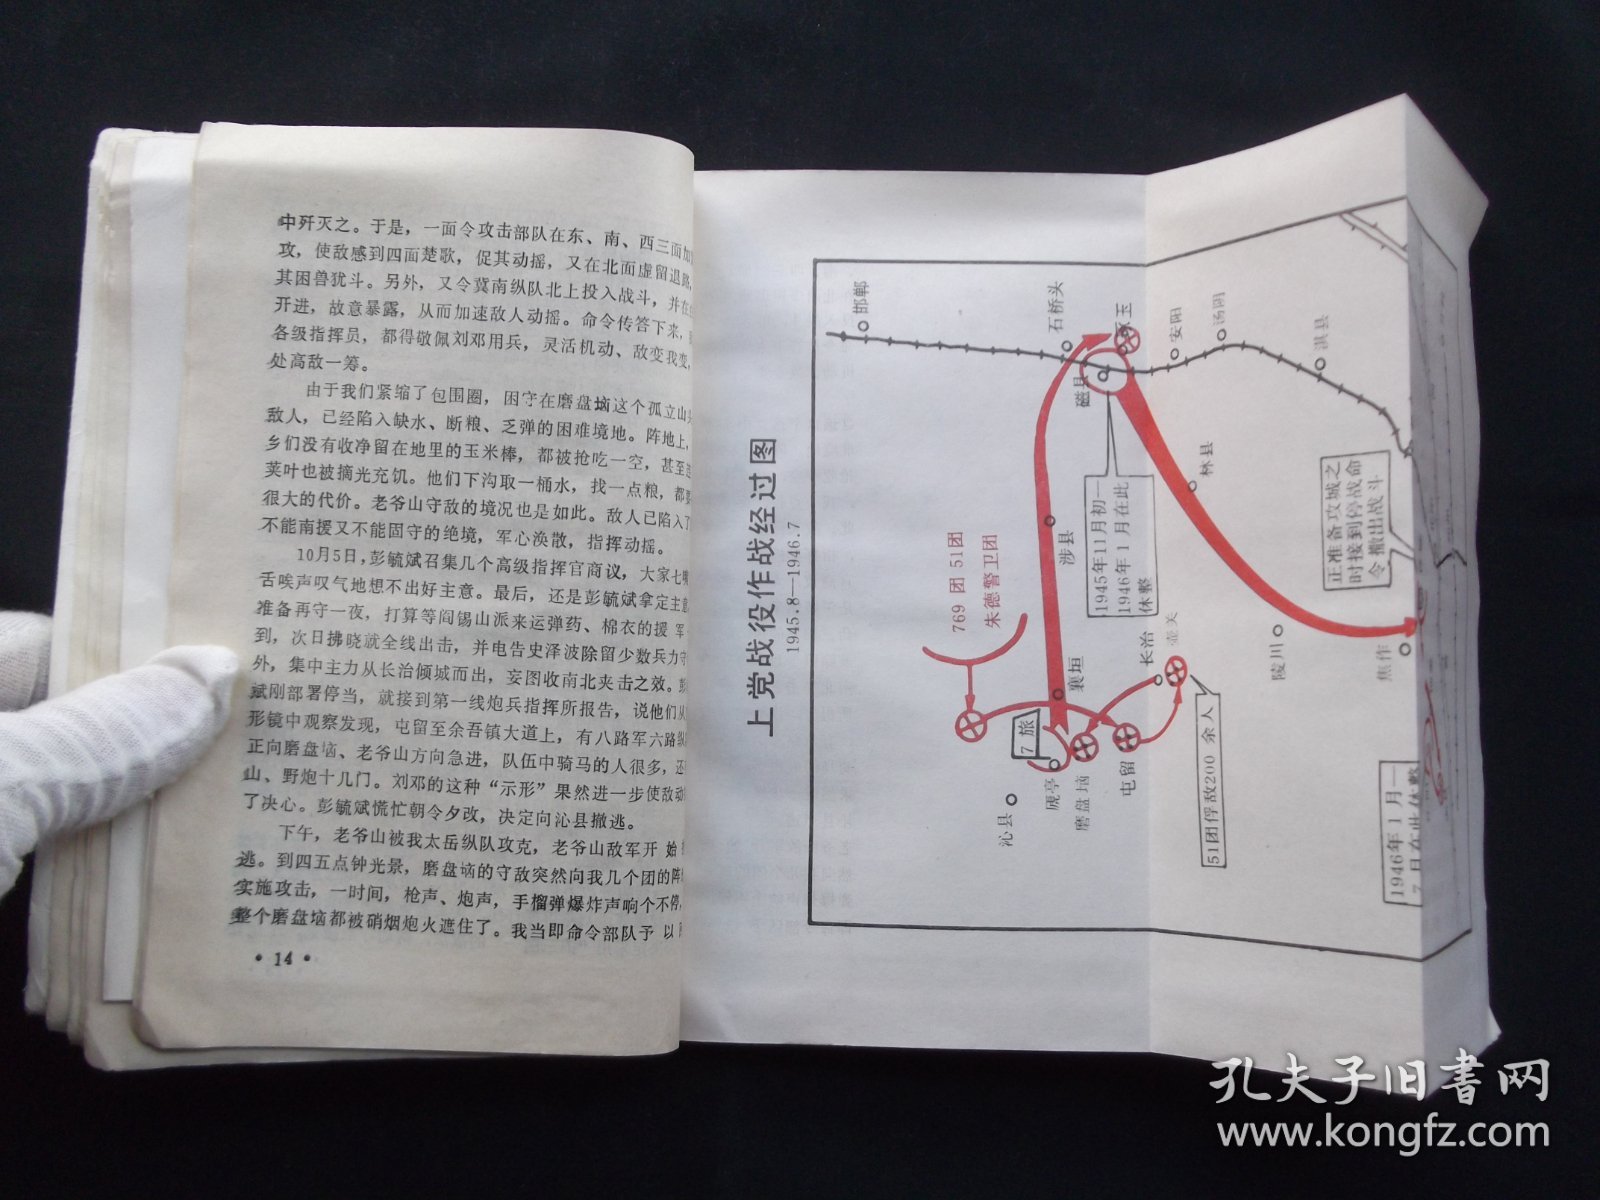 中歼灭之。于是，一面令攻击部队在东、南、西三面加
攻，使敌感到四面楚歌，促其动摇，又在北面虚留退路，
其困兽犹斗。另外，又令冀南纵队北上投入战斗，并在
开进，故意暴露，从而加速敌人动摇。命令传答下来，
各级指挥员，都得敬佩刘邓用兵，灵活机动、敌变我变，
处高敌一筹。
由于我们紧缩了包围圈，困守在磨盘垴这个孤立山
敌人，已经陷入缺水、断粮、乏弹的困难境地。阵地上，
乡们没有收净留在地里的玉米棒，都被抢吃一空，甚至连
荚叶也被摘光充饥。他们下沟取一桶水，找一点粮，都要
很大的代价。老爷山守敌的境况也是如此。敌人已陷入了
不能南援又不能固守的绝境，军心涣散，指挥动摇。
10月5日，彭毓斌召集几个高级指挥官商议，大家七嘴
舌唉声叹气地想不出好主意。最后，还是彭毓斌拿定主意
准备再守一夜，打算等阎锡山派来运弹药、棉衣的援 军
到，次日拂晓就全线出击，并电告史泽波除留少数兵力守
外，集中主力从长治倾城而出，妄图收南北夹击之效。彭
斌刚部署停当，就接到第一线炮兵指挥所报告，说他们从
形镜中观察发现，屯留至余吾镇大道上，有八路军六路纵
正向磨盘垴、老爷山方向急进，队伍中骑马的人很多，还
山、野炮十几门。刘邓的这种“示形”果然进一步使敌动
了决心。彭毓斌慌忙朝令夕改，决定向沁县撤逃。
下午，老爷山被我太岳纵队攻克，老爷山敌军开 始
逃。到四五点钟光景，磨盘垴的守敌突然向我几个团的阵
实施攻击，一时间，枪声、炮声，手榴弹爆炸声响个不停，
整个磨盘垴都被硝烟炮火遮住了。我当即命令部队予 以
• 14 •
上党战役作战经过图
1945.8—1946.7
邯郸
石桥头
玉
磁县
安阳
汤阴
淇县
林县
涉县
769 团 51团
朱德警卫团
1945年11月初—
1946年 1 月在此
休整
正准备攻城之
时接到停战命
令 撤出战斗
襄垣
长治
壶关
陵川
焦作
7 旅
虒亭
磨盘垴
屯留
沁县
51团俘敌200 余人
1946年 1 月—
7 月在此休整
孔夫子旧书网
www.kongfz.com